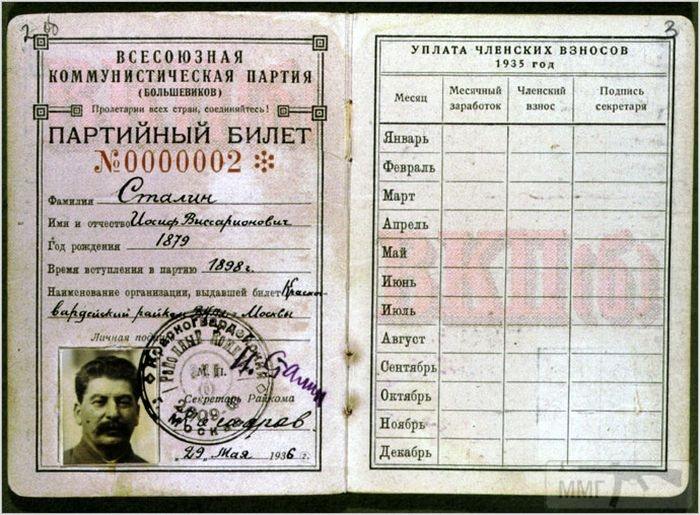 2
ВСЕСОЮЗНАЯ
КОММУНИСТИЧЕСКАЯ ПАРТИЯ
(БОЛЬШЕВИКОВ)
Пролетарии всех стран, соединяйтесь!
ПАРТИЙНЫЙ БИЛЕТ
№0000002
Фамилия Сталин
Имя и отчество Иосиф Виссарионович
Год рождения 1879
Время вступления в партию 1898 г.
Наименование организации, выдавшей билет Красно-
гвардейский райком ВКП(б) г. Москвы
Личная
И. Сталин
М. П.
Секретарь Райкома
„29„ Мая 1936 г.
3
УПЛАТА ЧЛЕНСКИХ ВЗНОСОВ
1935 год
Месяц Месячный заработок Членский взнос Подпись секретаря
Январь
Февраль
Март
Апрель
Май
Июнь
Июль
Август
Сентябрь
Октябрь
Ноябрь
Декабрь
ВКП(б)
ММГ